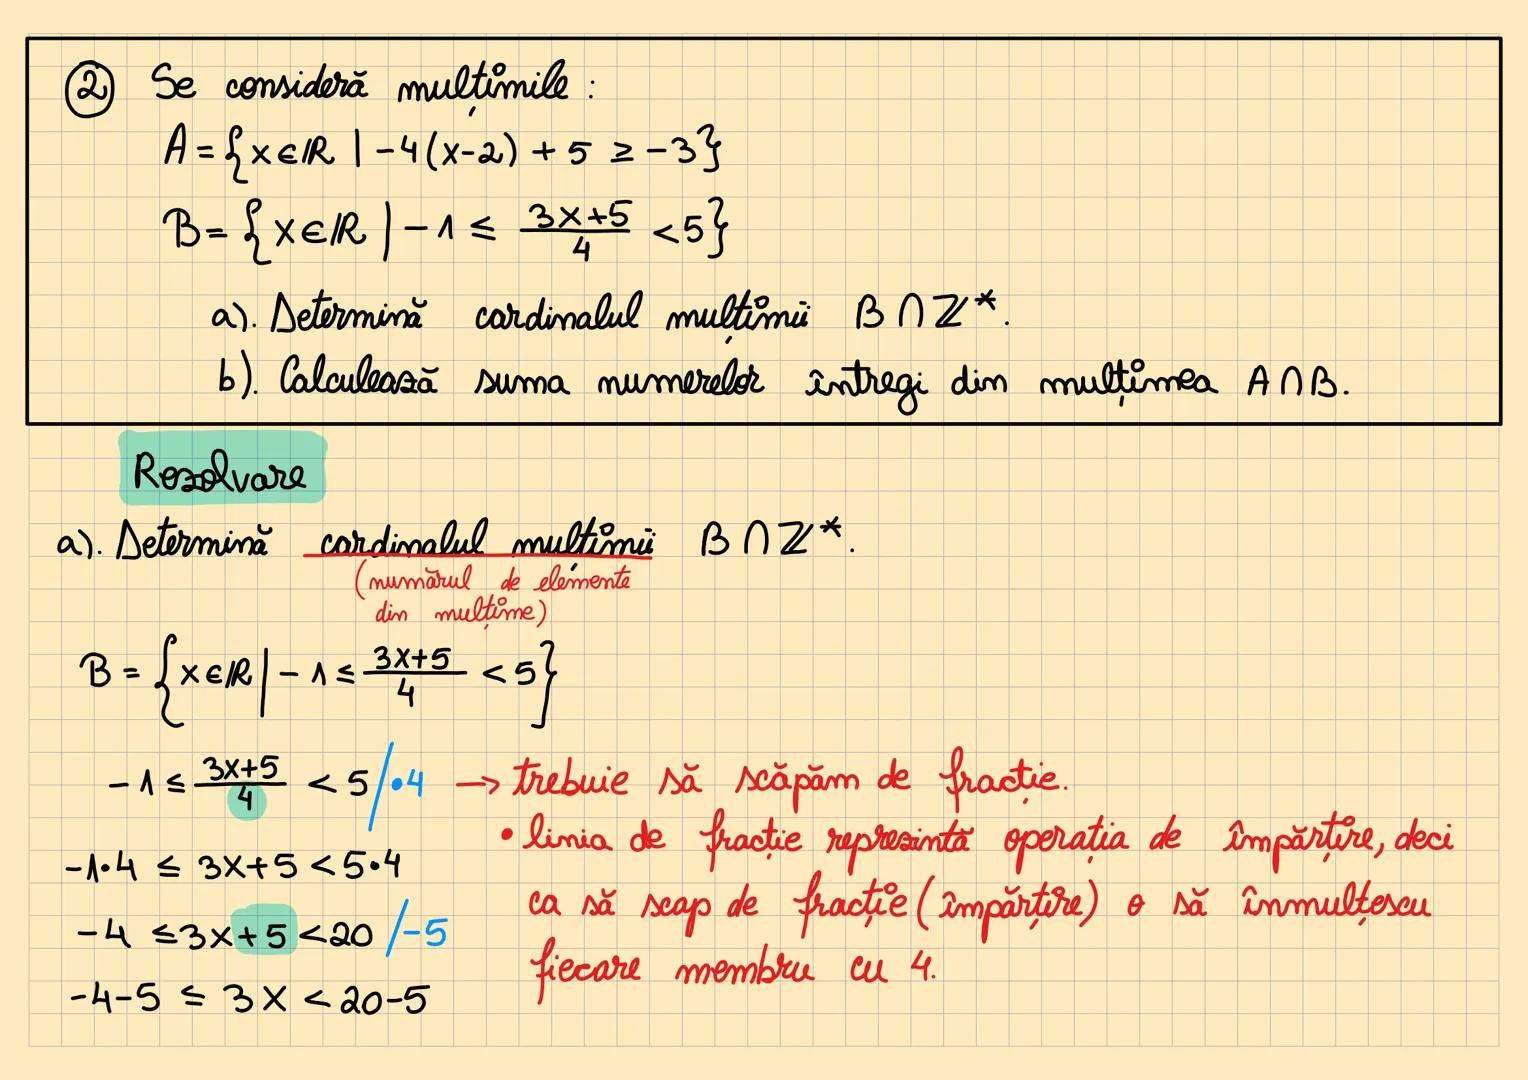 ② Se consideră mulțimile :
A = {x∈ℝ | -4(x-2) + 5 ≥ -3}
B = {x∈ℝ | -1 ≤ (3x+5)/4 < 5}
a). Determină cardinalul mulțimii B∩ℤ*.
b). Calculează suma numerelor întregi din mulțimea A∩B.
Rezolvare
a). Determină cardinalul mulțimii B∩ℤ*.
(numărul de elemente
din mulțime)
B = {x∈ℝ | -1 ≤ (3x+5)/4 < 5}
-1 ≤ (3x+5)/4 < 5 /•4 → trebuie să scăpăm de fracție.
• linia de fracție reprezintă operația de împărțire, deci
-1•4 ≤ 3x+5 < 5•4
ca să scap de fracție (împărțire) o să înmulțescu
-4 ≤ 3x+5 < 20 /-5
fiecare membru cu 4.
-4-5 ≤ 3x < 20-5